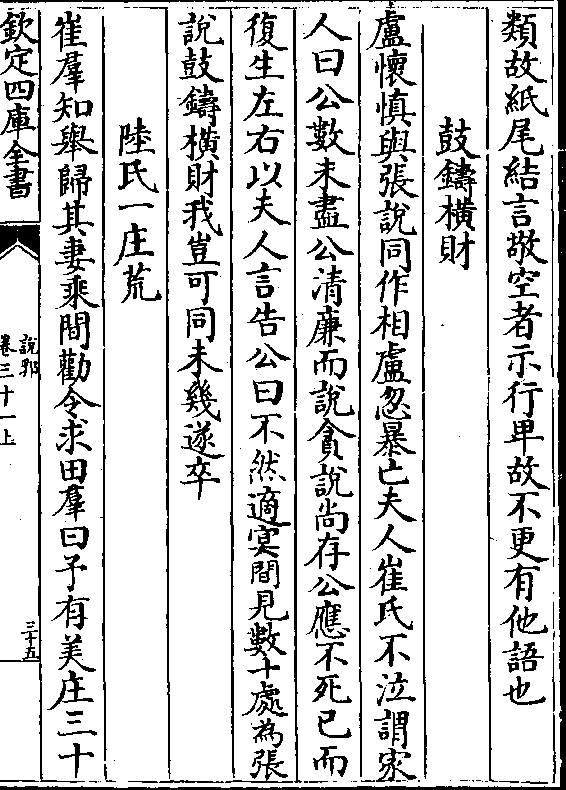 類故紙尾結言敬空者示行卑故不更有他語也
鼓鑄橫財
盧懷慎與張說同作相盧忽暴亡夫人崔氏不泣謂家
人曰公數未盡公清廉而說貪說尚存公應不死已而
復生左右以夫人言告公曰不然適冥間見數十處為張
說鼓鑄橫財我豈可同未幾遂卒
陸氏一庄荒
崔羣知舉歸其妻乘間勸令求田羣曰予有美庄三十
欽定四庫全書
說郛
卷三十一上
三十五